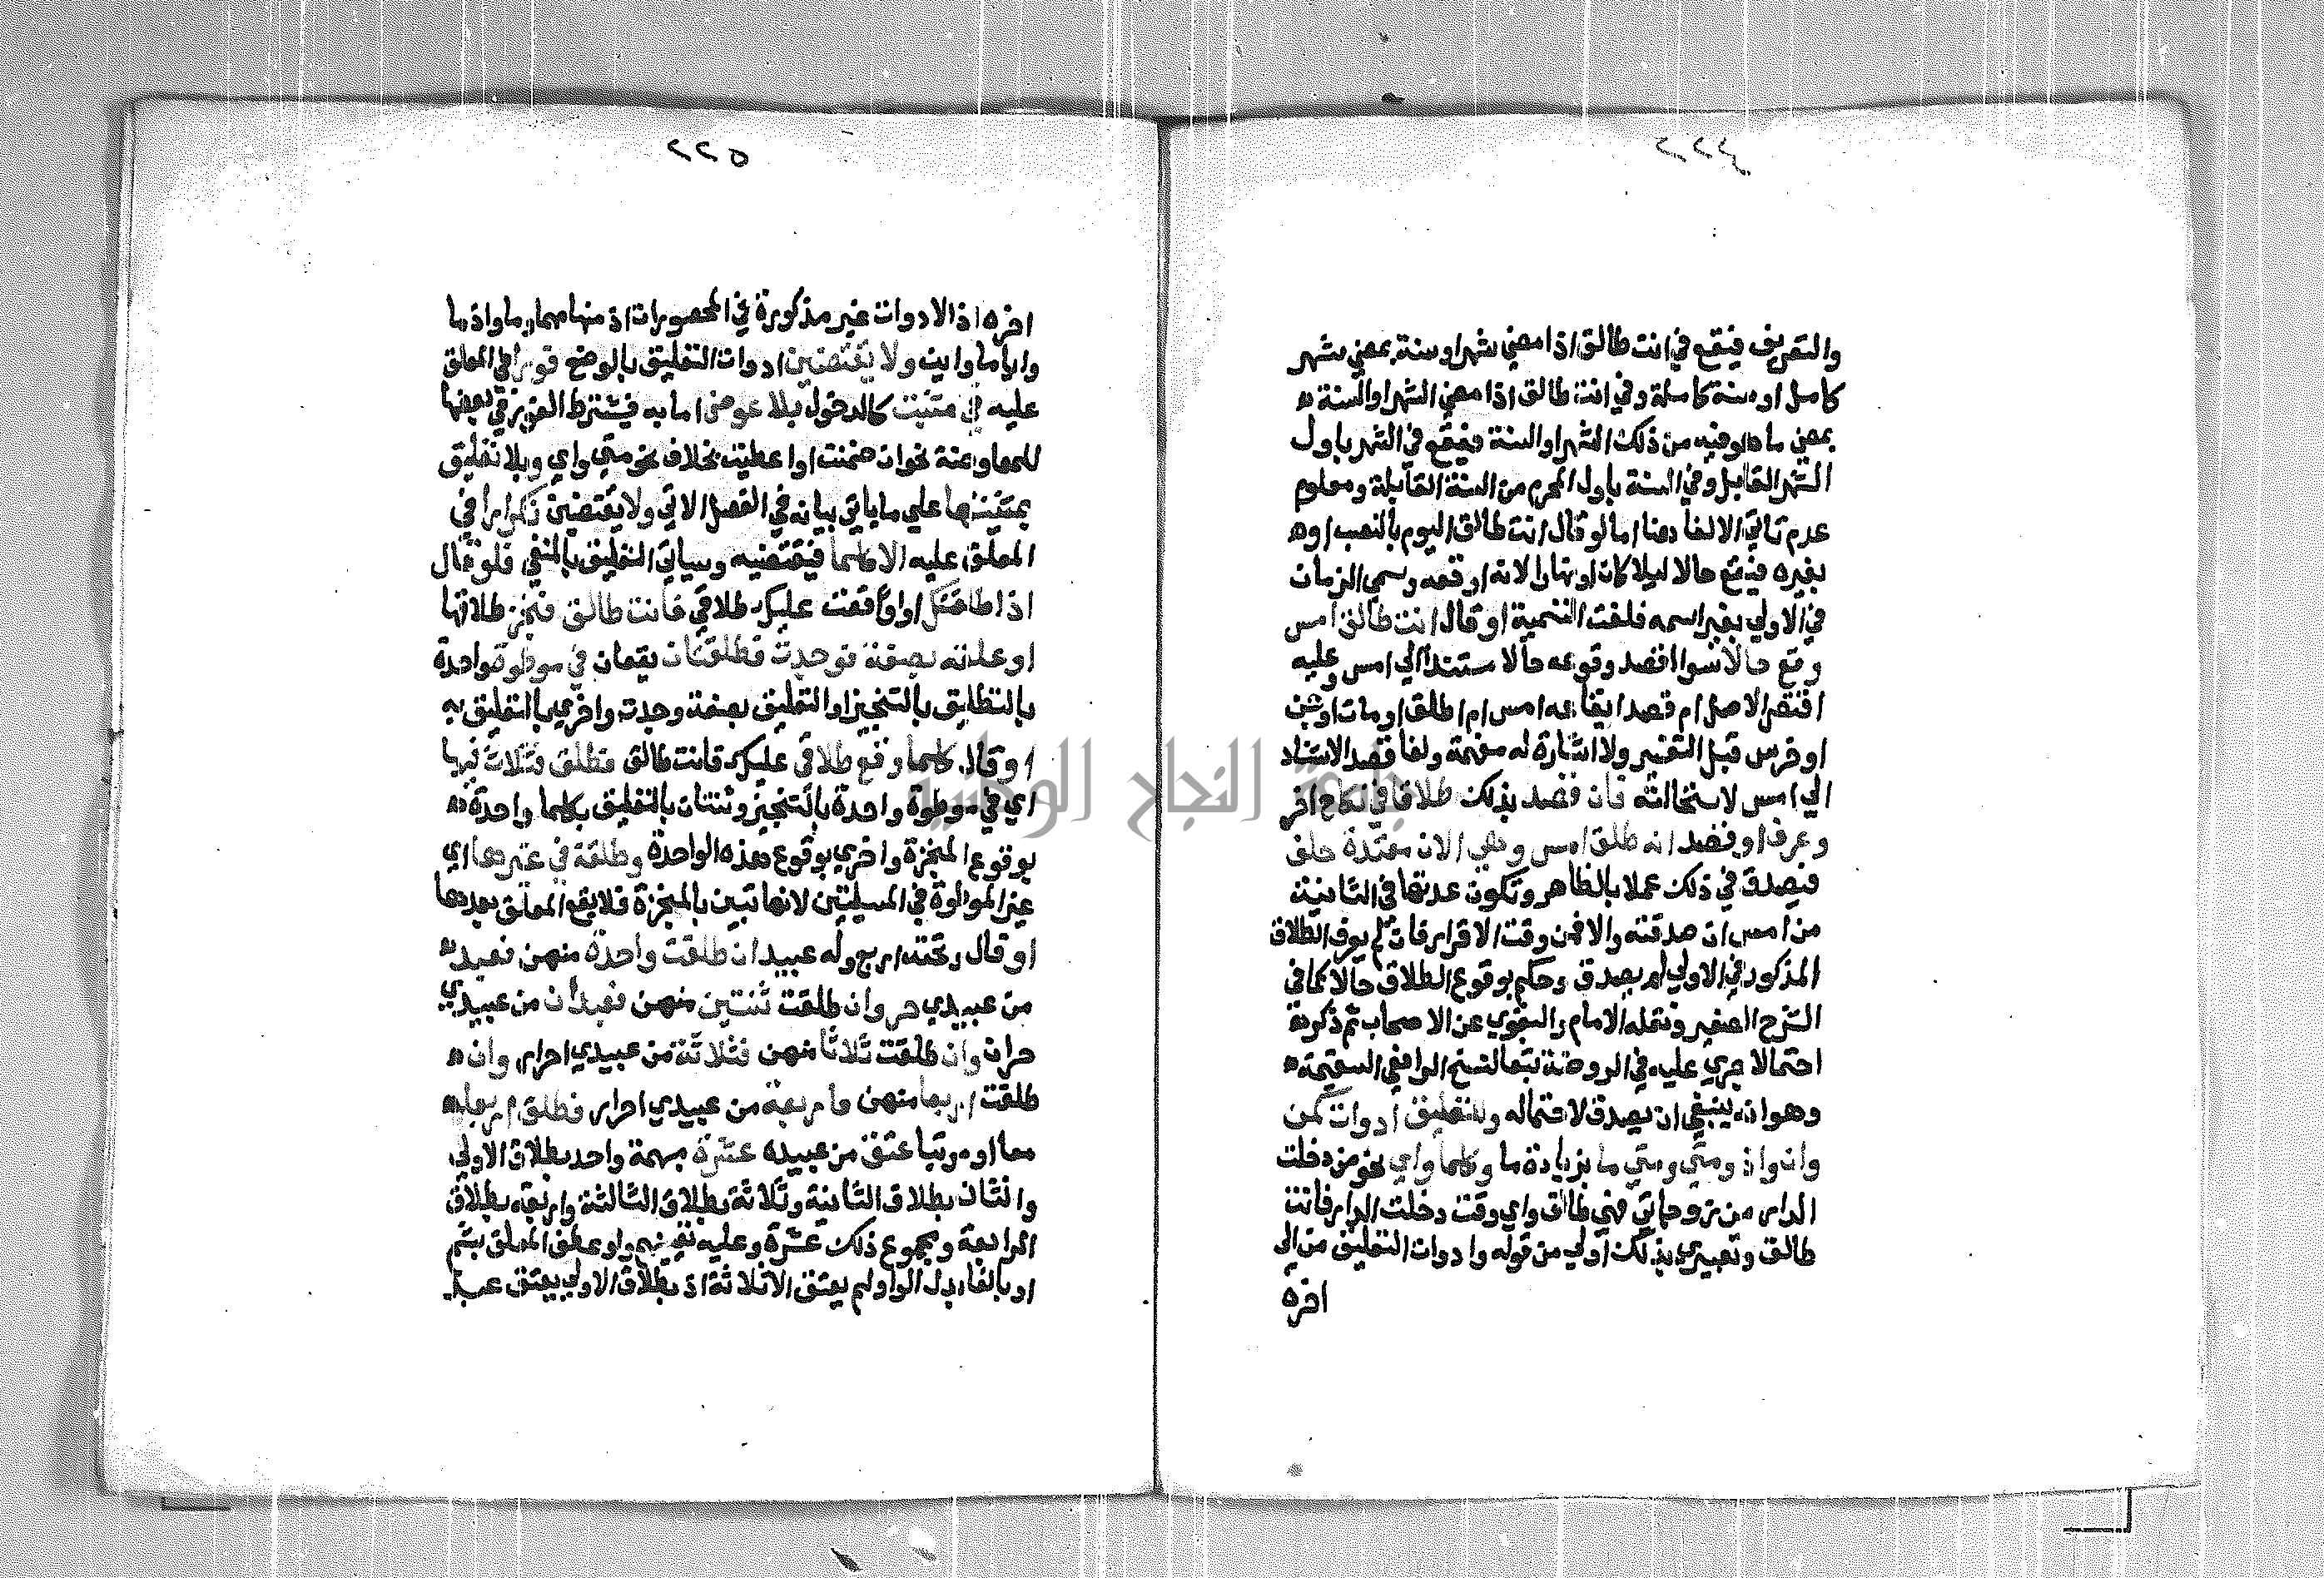 ٢٢٤
والتعريف فيقع في انت طالق اذا مضي شهر او سنة بمضي شهر
كامل او سنة كاملة وفي انت طالق اذا مضي الشهر او السنة
بمضي ما هو فيه من ذلك الشهر او السنة فيقع في الشهر باول
الشهر القابل وفي السنة باول المحرم من السنة القابلة ومعلوم
عدم تاتي الالغا هنا اما لو قال انت طالق اليوم بالنصب او
بغيره فيقع حالا ليلا كان او نهارا لانه اوقعه وسمي الزمان
في الاولي بغير اسمه فلغت التسمية او قال انت طالق امس
وقع حالا سوا اقصد وقوعه حالا مستندا الي امس وعليه
اقتصر الاصل ام قصد ايقاعه امس ام اطلق او مات او جن
او خرس قبل التفسير ولا اشارة له مفهمة ولغا قصد الاستناد
الي امس لاستحالته فان قصد بذلك طلاقا في نكاح اخر
وعرف او قصد انه طلق امس وهي الان معتدة حلف
فيصدق في ذلك عملا بالظاهر وتكون عدتها في الثانية
من امس ان صدقته والا فمن وقت الاقرار فان لم يعرف الطلاق
المذكور في الاولي لم يصدق وحكم بوقوع الطلاق حالا كما في
الشرح الصغير ونقله الامام والبغوي عن الاصحاب ثم ذكر
احتمالا جري عليه في الروضة تبعا لنسخ الرافعي السقيمة
وهو انه ينبغي ان يصدق لاحتماله وللتعليق ادوات كمن
وان واذا ومتي ومتي ما بزيادة ما وكلما واي نحو من دخلت
الدار من زوجاتي فهي طالق واي وقت دخلت الدار فانت
طالق وتعبيري بذلك اولي من قوله وادوات التعليق من الي
اخره
٢٢٥
اخره اذ الادوات غير مذكورة في المحصورات اذ منها مهما وما واذ ما
وايا ما واين ولا يقتضين ادوات التعليق بالوضع فورا في المعلق
عليه في مثبت كالدخول بلا عوض اما به فيشترط الفور في بعضها
للمعاوضة نحو ان ضمنت او اعطيت بخلاف نحو متي واي وبلا تعليق
بمشيئتها علي ما ياتي بيانه في الفصل الاتي ولا يقتضين تكرارا في
المعلق عليه الا كلما فيقتضيه وسياتي التعليق بالنفي فلو قال
اذا طلقتك او اوقعت عليك طلاقي فانت طالق فنجز طلاقها
او علقه بصفة فوجدت فطلقتان يقعان في موطوة واحدة
بالتطليق بالتنجيز او التعليق بصفة وجدت واخري بالتعليق به
او قال كلما وقع طلاقي عليك فانت طالق فطلق فثلاث فيها
اي في موطوة واحدة بالتنجيز وثنتان بالتعليق بكلما واحدة
بوقوع المنجزة واخري بوقوع هذه الواحدة وطلقة في غيرها اي
غير الموطوة في المسئلتين لانها تبين بالمنجزة فلا يقع المعلق بعدها
او قال وتحته اربع وله عبيد ان طلقت واحدة منهن فعبد
من عبيدي حر وان طلقت ثنتين منهن فعبدان من عبيدي
حران وان طلقت ثلاثا منهن فثلاثة من عبيدي احرار وان
طلقت اربعا منهن فاربعة من عبيدي احرار فطلق اربعا
معا او مرتبا عتق من عبيده عشرة مبهمة واحد بطلاق الاولي
واثنان بطلاق الثانية وثلاثة بطلاق الثالثة واربعة بطلاق
الرابعة ومجموع ذلك عشرة وعليه تعيينهم ولو عطف المعلق بثم
او بالفا بدل الواو لم يعتق الا ثلاثة اذ بطلاق الاولي يعتق عبد
جامعة النجاح الوطنية